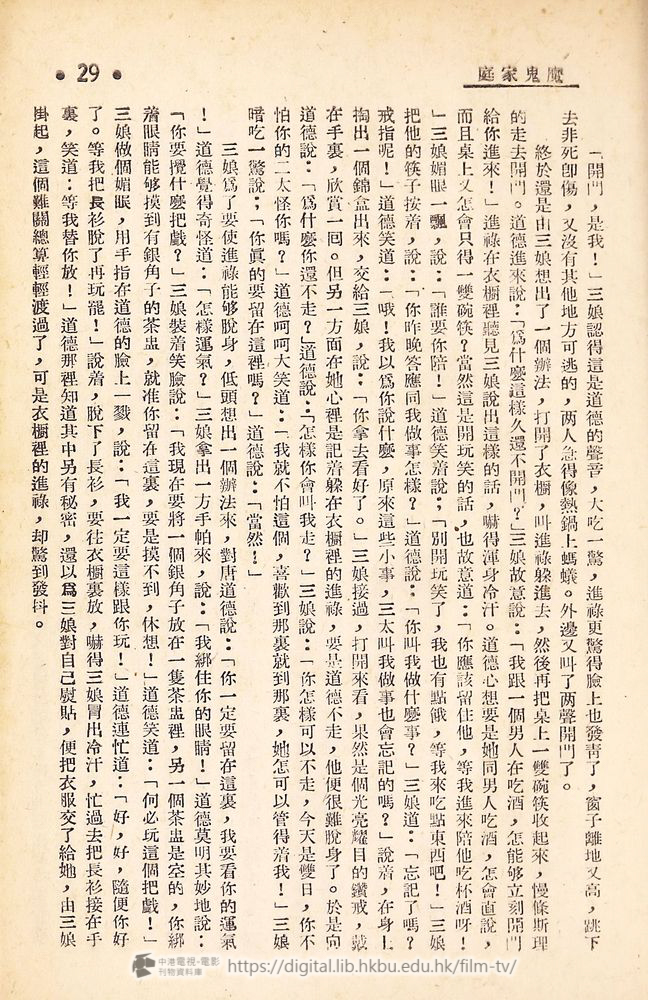 庭家鬼魔
• 29 •
「開門，是我！」三娘認得這是道德的聲音，大吃一驚，進祿更驚得臉上也發青了，窗子離地又高，跳下
去非死卽傷，又沒有其他地方可逃的，两人急得像熱鍋上螞蟻。外邊又叫了两聲開門了。
終於還是由三娘想出了一個辦法，打開了衣櫥，叫進祿躲進去，然後再把桌上一雙碗筷收起來，慢條斯理
的走去開門。道德進來說：「爲什麼這樣久還不開門？」三娘故意說：「我跟一個男人在吃酒，怎能够立刻開門
給你進來！」進祿在衣櫥裡聽見三娘說出這樣的話，嚇得渾身冷汗。道德心想要是她同男人吃酒，怎會直說，
而且桌上又怎會只得一雙碗筷？當然這是開玩笑的話，也故意道：「你應該留住他，等我進來陪他吃杯酒呀！
」三娘媚眼一飄，說：「誰要你陪！」道德笑着說；「別開玩笑了，我也有點餓，等我來吃點東西吧！」三娘
把他的筷子按着，說：「你昨晚答應同我做事怎樣？」道德說：「你叫我做什麼事？」三娘道：「忘記了嗎？
戒指呢！」道德笑道：「哦！我以爲你說什麼，原來這些小事，三太叫我做事也會忘記的嗎？」說着，在身上
掏出一個錦盒出來，交給三娘，說：「你拿去看好了。」三娘接過，打開來看，果然是個光亮耀目的鑽戒，藏
在手裏，欣賞一回。但另一方面在她心裡是記着躲在衣櫥裡的進祿，要是道德不走，他便很難脫身了。於是向
道德說：「爲什麼你還不走？」道德說：「怎樣你會叫我走？」三娘說：「你怎樣可以不走，今天是雙日，你不
怕你的二太怪你嗎？」道德呵呵大笑道：「我就不怕這個，喜歡到那裏就到那裏，她怎可以管得着我！」三娘
暗吃一驚說；「你眞的要留在這裡嗎？」道德說：「當然！」
三娘爲了要使進祿能够脫身，低頭想出一個辦法來，對唐道德說：「你一定要留在這裏，我要看你的運氣
！」道德覺得奇怪道：「怎樣運氣？」三娘拿出一方手帕來，說：「我綁住你的眼睛！」道德莫明其妙地說：
「你要攪什麼把戲？」三娘裝着笑臉說：「我現在要將一個銀角子放在一隻茶盅裡，另一個茶盅是空的，你綁
着眼睛能够摸到有銀角子的茶盅，就准你留在這裏，要是摸不到，休想！」道德笑道：「何必玩這個把戲！」
三娘做個媚眼，用手指在道德的臉上一戮，說：「我一定要這樣跟你玩！」道德連忙道：「好，好，隨便你好
了。等我把長衫脫了再玩罷！」說着，脫下了長衫，要往衣櫥裏放，嚇得三娘冒出冷汗，忙過去把長衫接在手
裏，笑道：等我替你放！」道德那裡知道其中另有秘密，還以爲三娘對自己熨貼，便把衣服交了給她，由三娘
掛起，這個難關總算輕輕渡過了，可是衣櫥裡的進祿，却驚到發抖。
中港電視-電影
刊物資料庫
https://digital.lib.hkbu.edu.hk/film-tv/